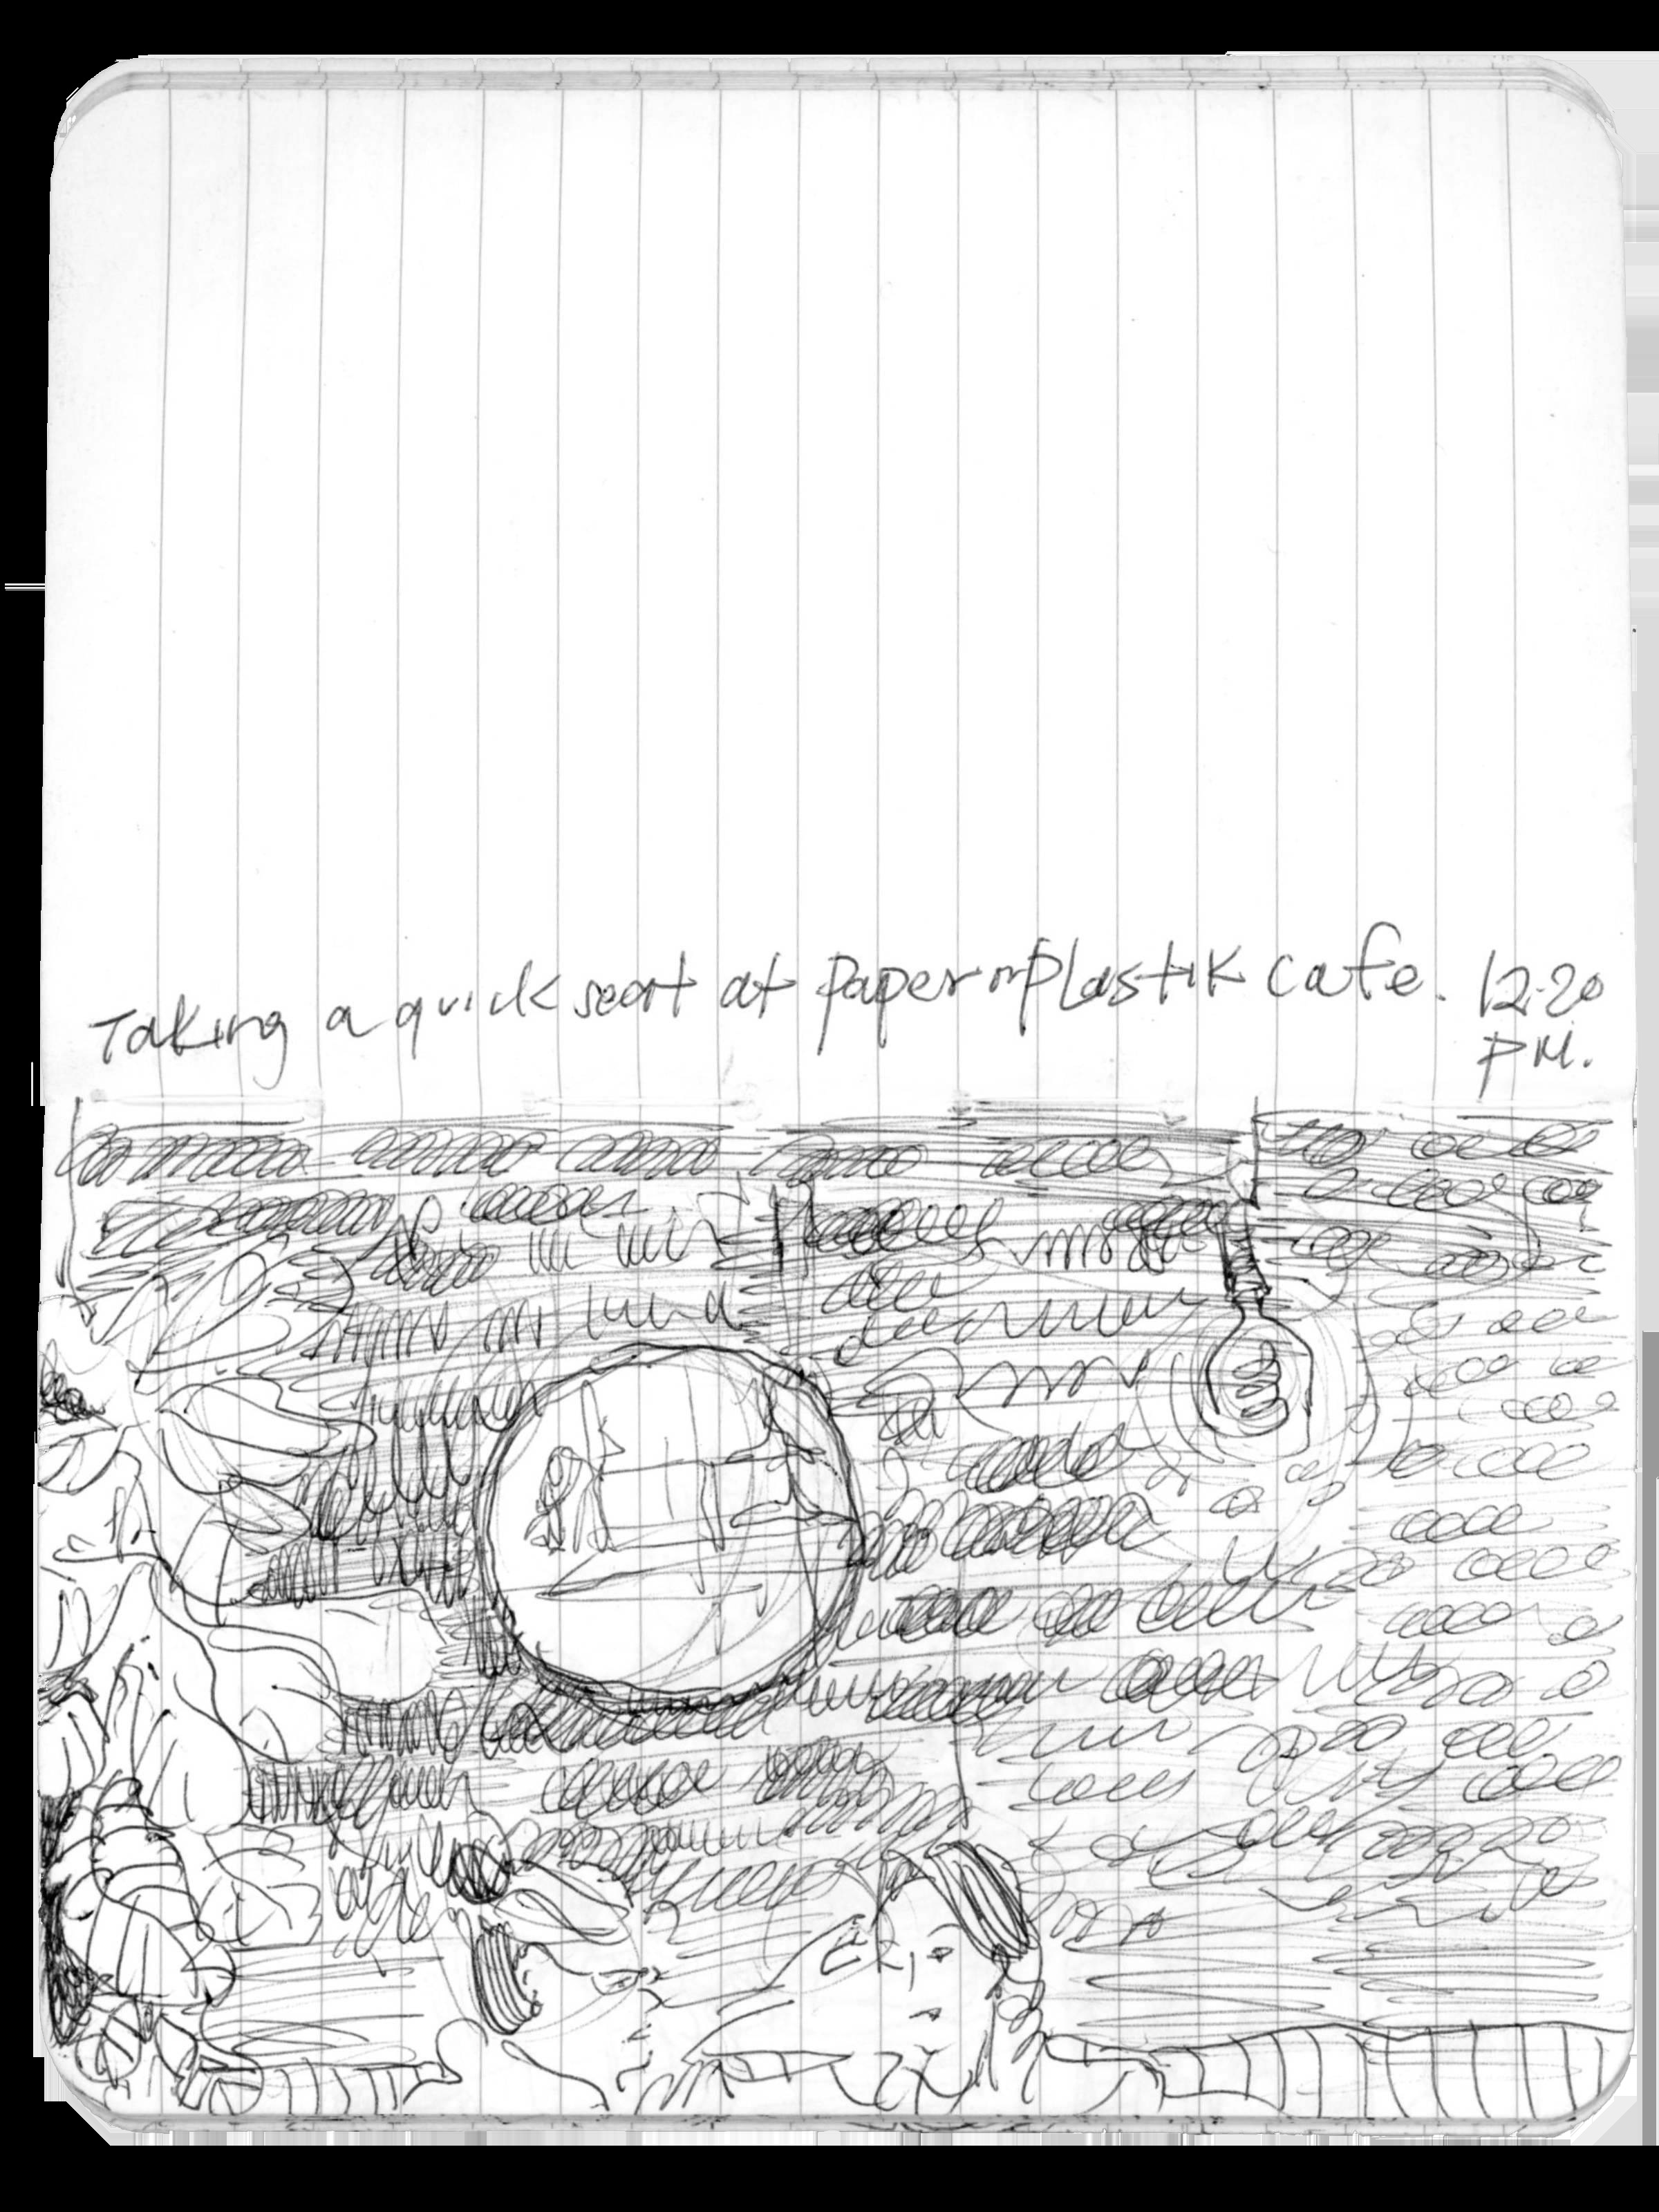 Taking a quick seat at paper n plastik cafe. 12:20
PM.